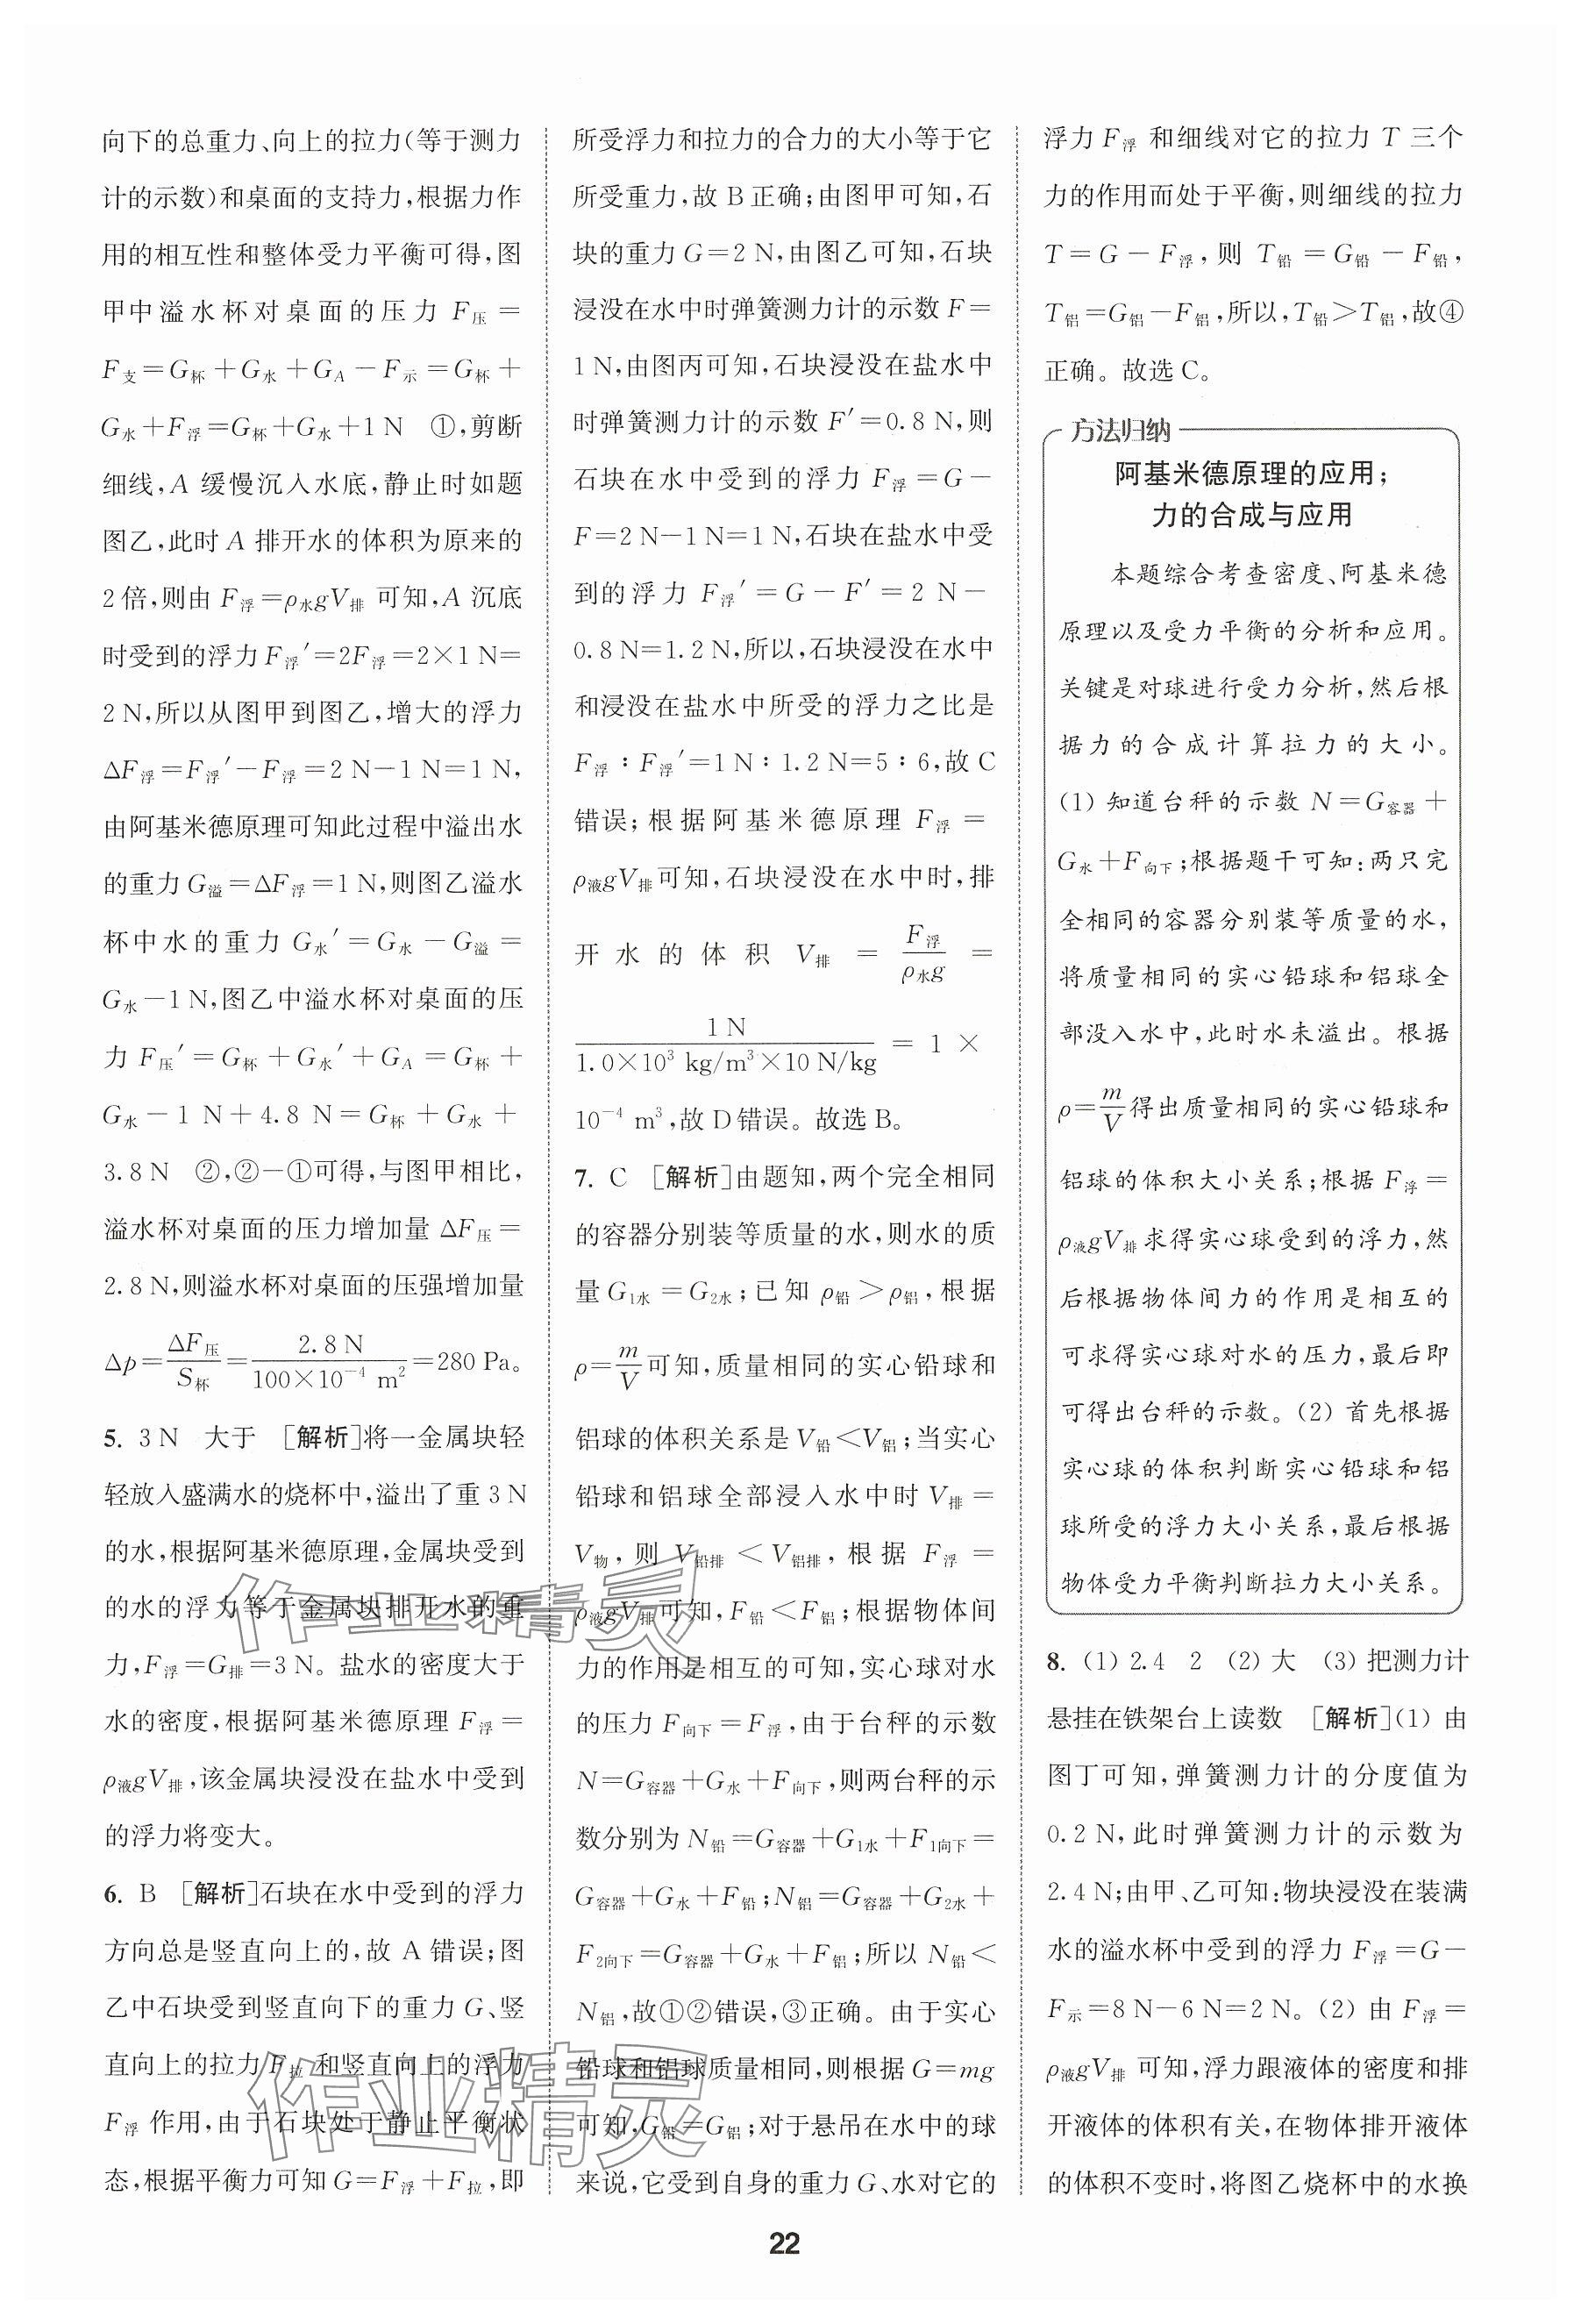 向下的总重力、向上的拉力(等于测力
计的示数)和桌面的支持力,根据力作
用的相互性和整体受力平衡可得,图
甲中溢水杯对桌面的压力 F压=
F支=G杯+G水+GA-F示=G杯+
G水+F浮=G杯+G水+1 N ①,剪断
细线,A 缓慢沉入水底,静止时如题
图乙,此时 A 排开水的体积为原来的
2倍,则由 F浮=ρ水gV排 可知,A 沉底
时受到的浮力 F浮′=2F浮=2×1 N=
2 N,所以从图甲到图乙,增大的浮力
ΔF浮=F浮′-F浮=2 N-1 N=1 N,
由阿基米德原理可知此过程中溢出水
的重力 G溢=ΔF浮=1 N,则图乙溢水
杯中水的重力 G水′=G水-G溢=
G水-1 N,图乙中溢水杯对桌面的压
力 F压′=G杯+G水′+GA=G杯+
G水-1 N+4.8 N=G杯+G水+
3.8 N ②,②-①可得,与图甲相比,
溢水杯对桌面的压力增加量 ΔF压=
2.8 N,则溢水杯对桌面的压强增加量
Δp=ΔF压/S杯=2.8 N/(100×10⁻⁴ m²)=280 Pa。
5. 3 N 大于 [解析]将一金属块轻
轻放入盛满水的烧杯中,溢出了重 3 N
的水,根据阿基米德原理,金属块受到
的水的浮力等于金属块排开水的重
力,F浮=G排=3 N。盐水的密度大于
水的密度,根据阿基米德原理 F浮=
ρ液gV排,该金属块浸没在盐水中受到
的浮力将变大。
6. B [解析]石块在水中受到的浮力
方向总是竖直向上的,故 A 错误;图
乙中石块受到竖直向下的重力 G、竖
直向上的拉力 F拉 和竖直向上的浮力
F浮 作用,由于石块处于静止平衡状
态,根据平衡力可知 G=F浮+F拉,即
所受浮力和拉力的合力的大小等于它
所受重力,故 B正确;由图甲可知,石
块的重力 G=2 N,由图乙可知,石块
浸没在水中时弹簧测力计的示数 F=
1 N,由图丙可知,石块浸没在盐水中
时弹簧测力计的示数 F′=0.8 N,则
石块在水中受到的浮力 F浮=G-
F=2 N-1 N=1 N,石块在盐水中受
到的浮力 F浮′=G-F′=2 N-
0.8 N=1.2 N,所以,石块浸没在水中
和浸没在盐水中所受的浮力之比是
F浮∶F浮′=1 N∶1.2 N=5∶6,故 C
错误;根据阿基米德原理 F浮=
ρ液gV排可知,石块浸没在水中时,排
开水的体积 V排=F浮/ρ水g=
1 N/(1.0×10³ kg/m³×10 N/kg)=1×
10⁻⁴ m³,故 D错误。故选B。
7. C [解析]由题知,两个完全相同
的容器分别装等质量的水,则水的质
量 G1水=G2水;已知 ρ铅>ρ铝,根据
ρ=m/V可知,质量相同的实心铅球和
铝球的体积关系是 V铅<V铝;当实心
铅球和铝球全部浸入水中时 V排=
V物,则 V铅排<V铝排,根据 F浮=
ρ液gV排可知,F铅<F铝;根据物体间
力的作用是相互的可知,实心球对水
的压力 F向下=F浮,由于台秤的示数
N=G容器+G水+F向下,则两台秤的示
数分别为 N铅=G容器+G1水+F1向下=
G容器+G水+F铅;N铝=G容器+G2水+
F2向下=G容器+G水+F铝;所以 N铅<
N铝,故①②错误,③正确。由于实心
铅球和铝球质量相同,则根据 G=mg
可知,G铅=G铝;对于悬吊在水中的球
来说,它受到自身的重力 G、水对它的
浮力 F浮 和细线对它的拉力 T 三个
力的作用而处于平衡,则细线的拉力
T=G-F浮,则 T铅=G铅-F铅,
T铝=G铝-F铝,所以,T铅>T铝,故④
正确。故选C。
方法归纳
阿基米德原理的应用;
力的合成与应用
本题综合考查密度、阿基米德
原理以及受力平衡的分析和应用。
关键是对球进行受力分析,然后根
据力的合成计算拉力的大小。
(1) 知道台秤的示数 N=G容器+
G水+F向下;根据题干可知:两只完
全相同的容器分别装等质量的水,
将质量相同的实心铅球和铝球全
部没入水中,此时水未溢出。根据
ρ=m/V得出质量相同的实心铅球和
铝球的体积大小关系;根据 F浮=
ρ液gV排求得实心球受到的浮力,然
后根据物体间力的作用是相互的
可求得实心球对水的压力,最后即
可得出台秤的示数。(2) 首先根据
实心球的体积判断实心铅球和铝
球所受的浮力大小关系,最后根据
物体受力平衡判断拉力大小关系。
8. (1) 2.4 2 (2) 大 (3) 把测力计
悬挂在铁架台上读数 [解析](1) 由
图丁可知,弹簧测力计的分度值为
0.2 N,此时弹簧测力计的示数为
2.4 N;由甲、乙可知:物块浸没在装满
水的溢水杯中受到的浮力 F浮=G-
F示=8 N-6 N=2 N。(2) 由 F浮=
ρ液gV排 可知,浮力跟液体的密度和排
开液体的体积有关,在物体排开液体
的体积不变时,将图乙烧杯中的水换
作业精灵
作业精灵
22